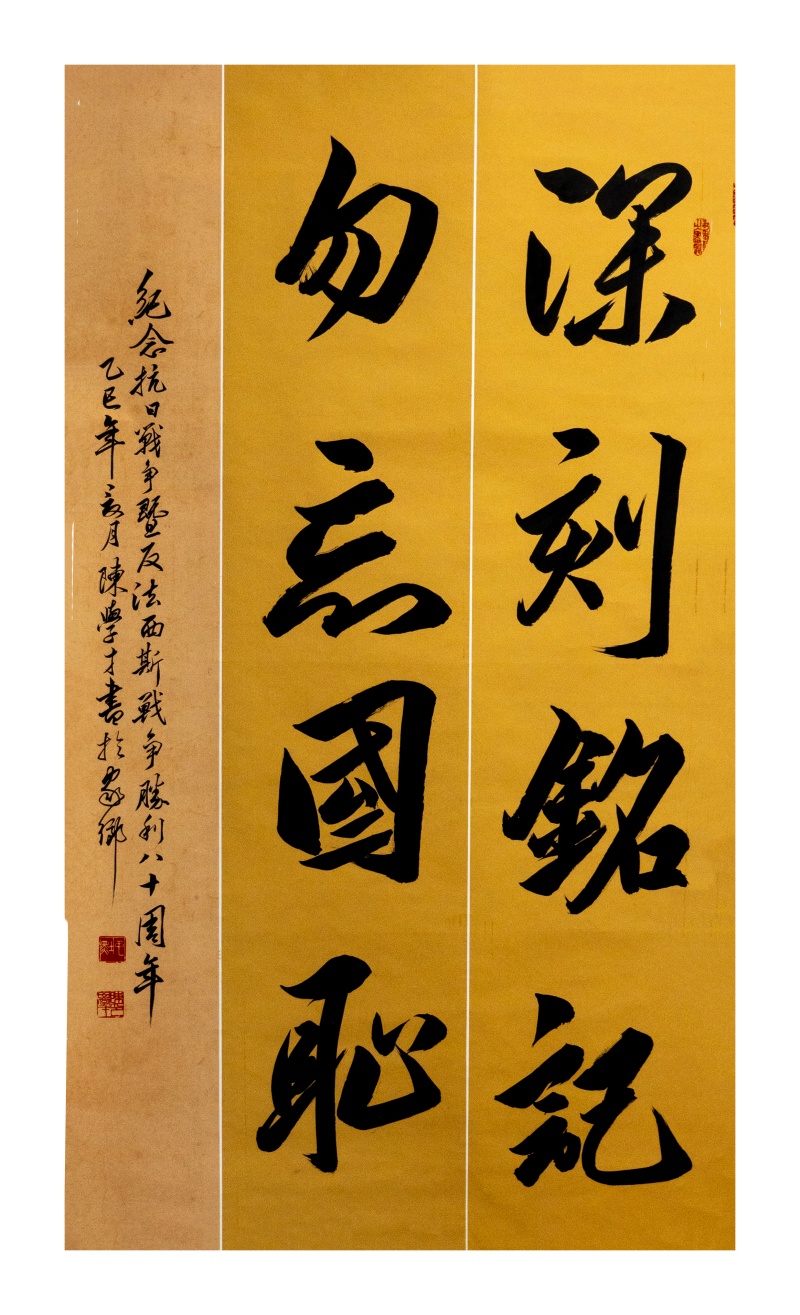 深刻銘記
勿忘國恥
紀念抗日戰争暨反法西斯戰争勝利八十周年
乙巳年 月陳學才書於家鄉